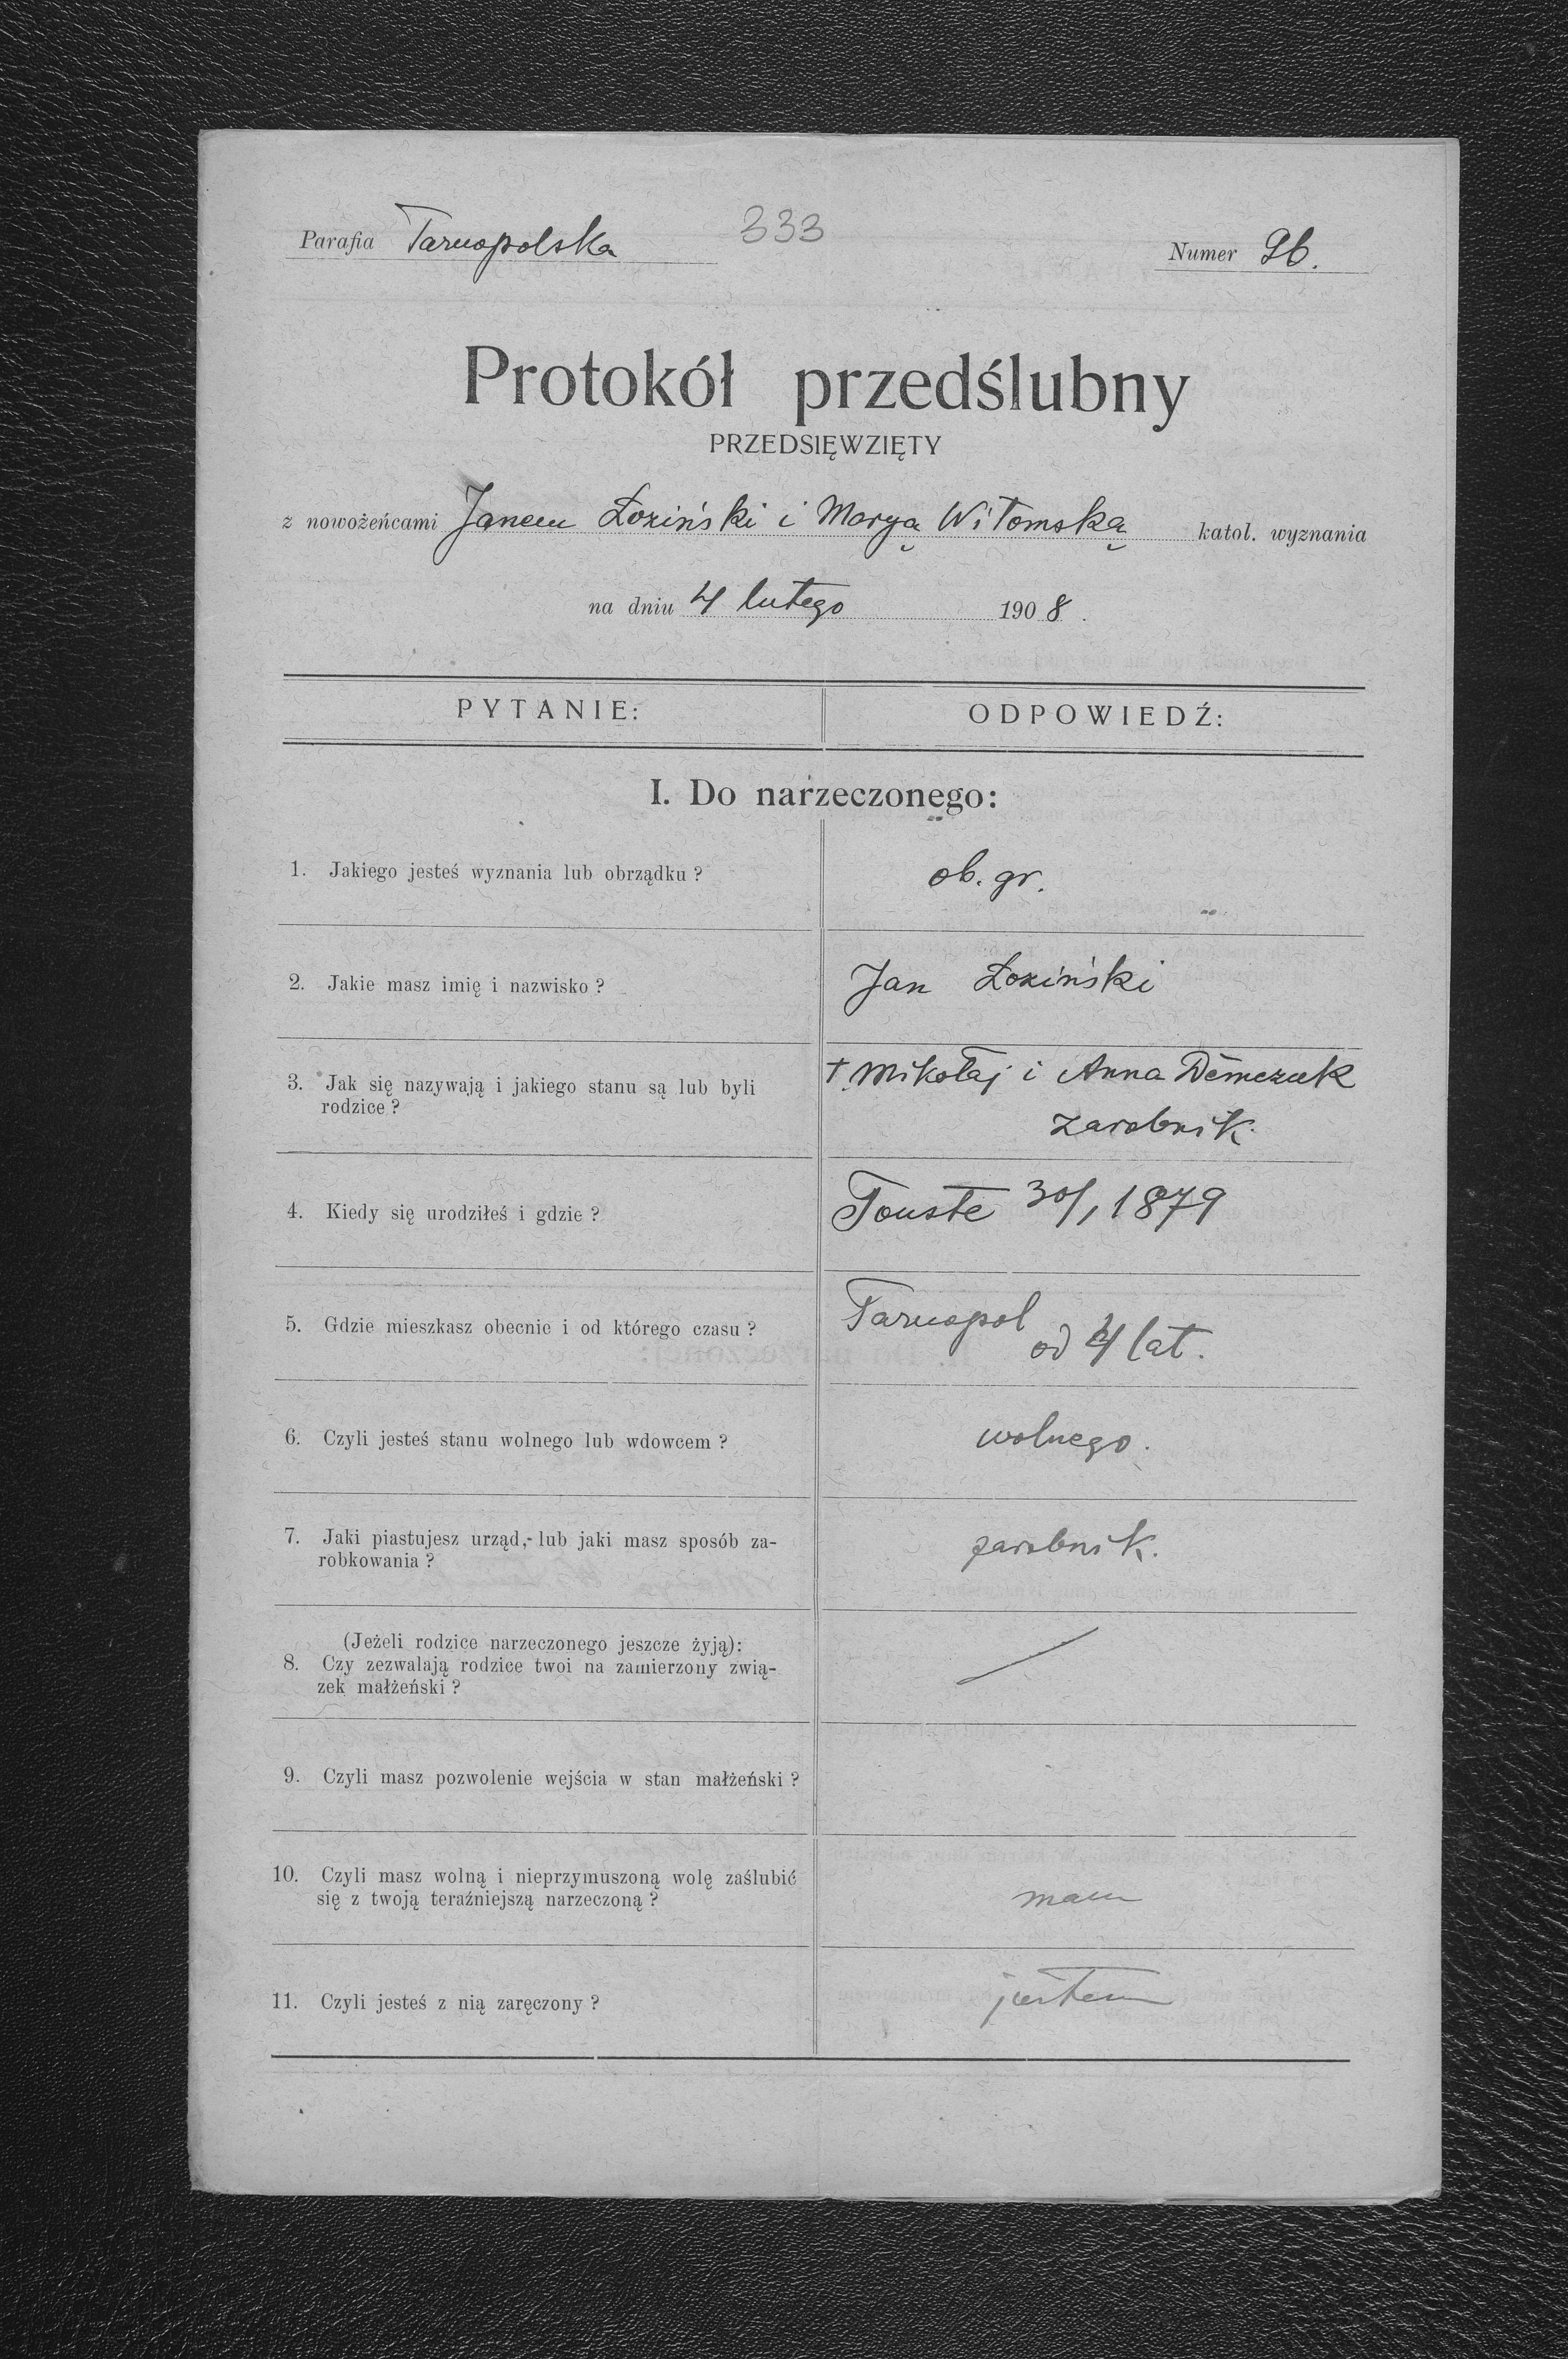 Parafia Tarnopolska 333 Numer 96.
Protokół przedślubny
PRZEDSIĘWZIĘTY
z nowożeńcami Janem Łoziński i Maryą Witomską katol. wyznania
na dniu 4 lutego 1908.
PYTANIE: ODPOWIEDŹ:
I. Do narzeczonego:
1. Jakiego jesteś wyznania lub obrządku? ob. gr.
2. Jakie masz imię i nazwisko? Jan Łoziński
3. Jak się nazywają i jakiego stanu są lub byli † Mikołaj i Anna Demczuk
rodzice? zarobnik
4. Kiedy się urodziłeś i gdzie? Touste 30/1 1879
5. Gdzie mieszkasz obecnie i od którego czasu? Tarnopol
od 4 lat.
6. Czyli jesteś stanu wolnego lub wdowcem? wolnego.
7. Jaki piastujesz urząd,- lub jaki masz sposób za-
robkowania? zarobnik.
(Jeżeli rodzice narzeczonego jeszcze żyją):
8. Czy zezwalają rodzice twoi na zamierzony zwią-
zek małżeński?
9. Czyli masz pozwolenie wejścia w stan małżeński?
10. Czyli masz wolną i nieprzymuszoną wolę zaślubić
się z twoją teraźniejszą narzeczoną? mam
11. Czyli jesteś z nią zaręczony? jestem